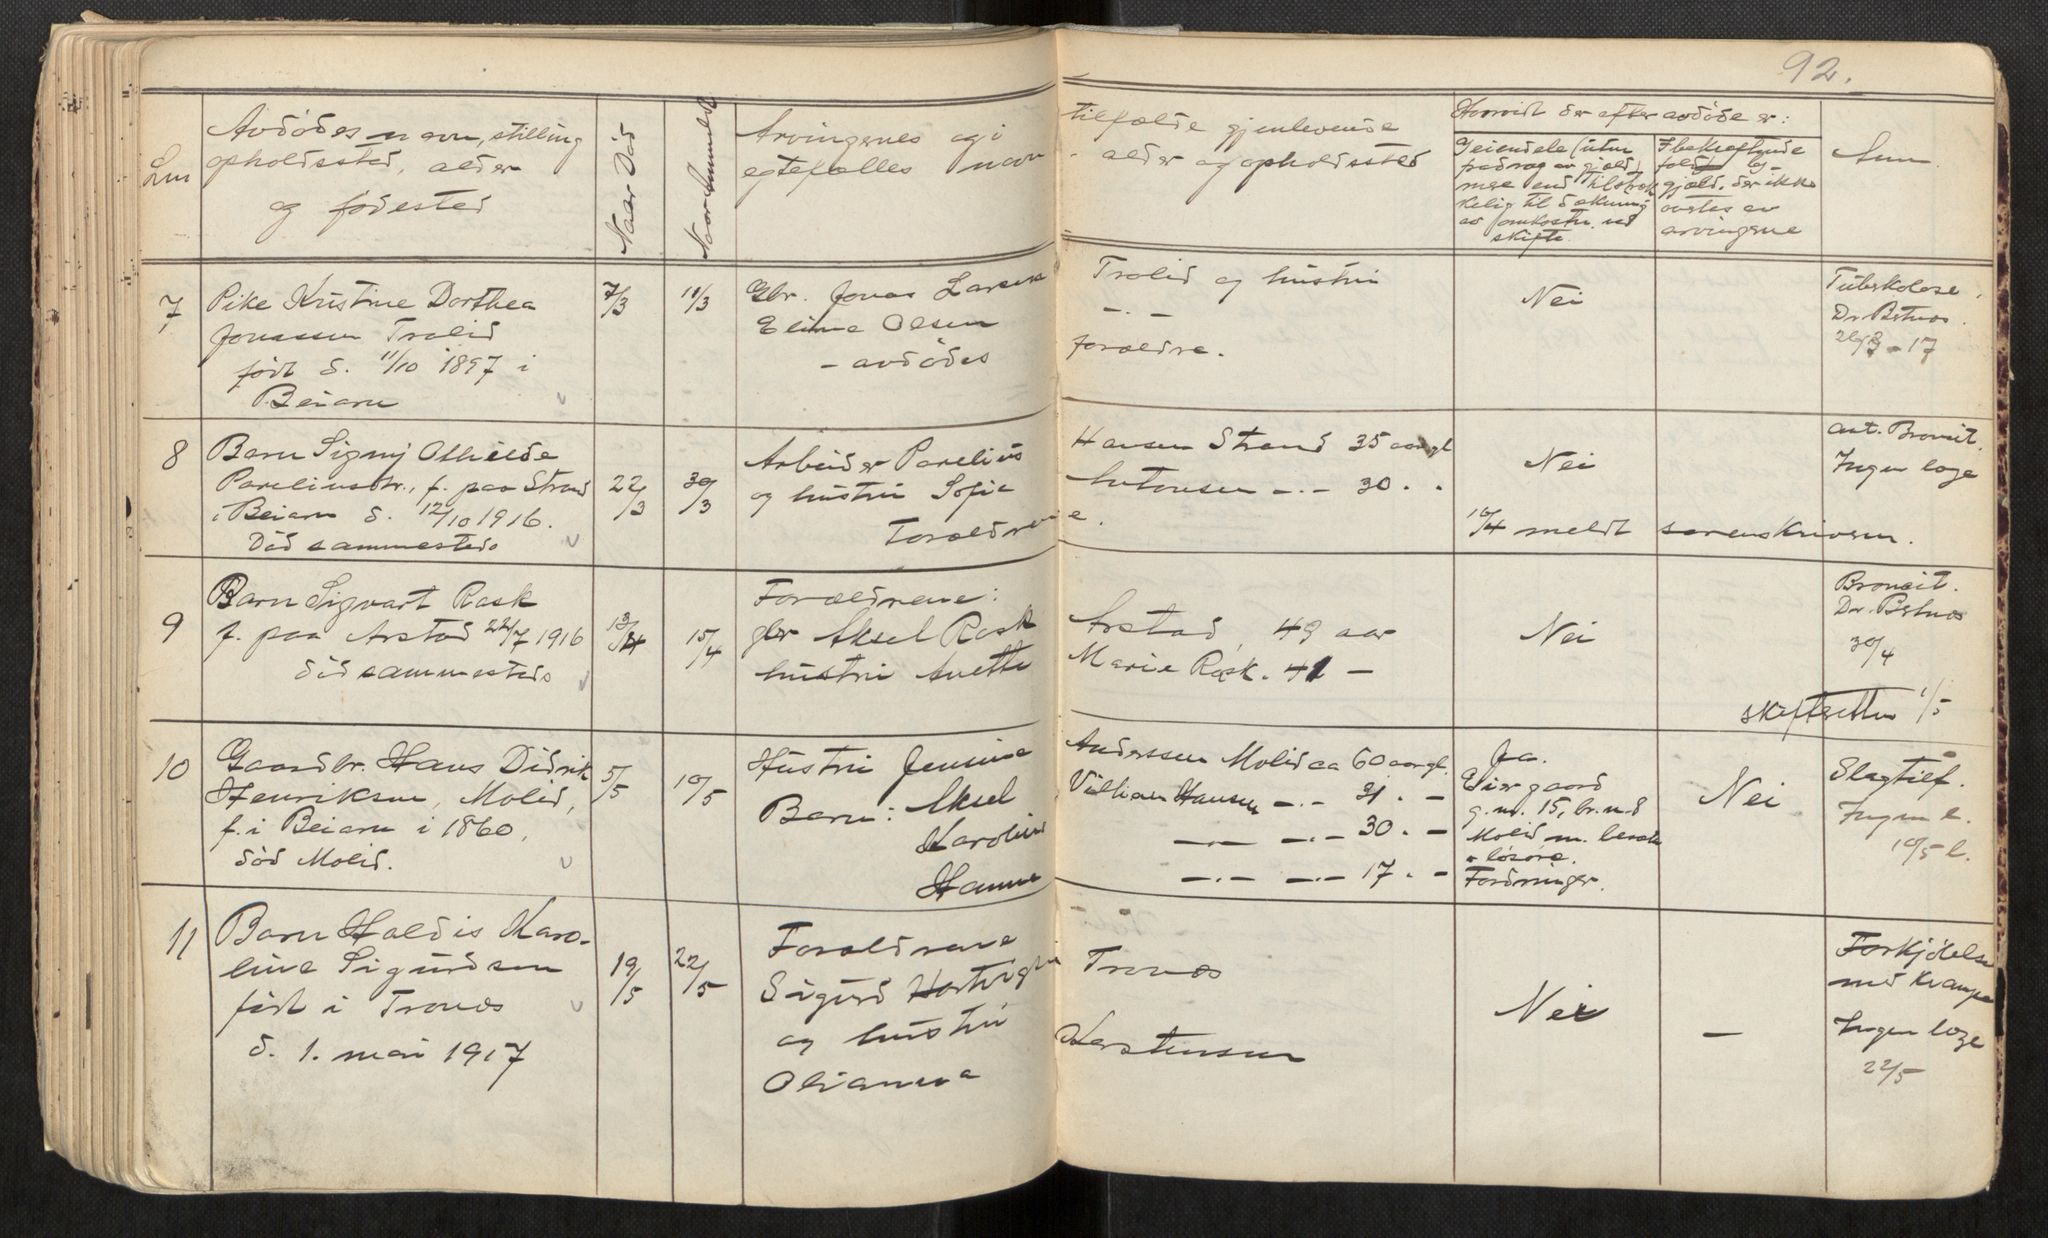 92.
Lnr
Avdødes navn, stilling
opholdssted, alder
og fødested
Naar Død
Naar Anmeldt
Arvingernes og i tilfælde gjenlevende
egtefælles navn alder og opholdssted
Hvorvidt der efter avdøde er:
Eiendele (utenfradrag av gjæld)
mere end tilstræk-
kelig til dækning
av omkostn. ved
skifte
Ubekræftende
fald og
gjæld, der ikke
overtas av
arvingerne
Anm.
7,
Pike Kristine Dorthea
Jonassen Trolid
født d. 11/10 1897 i
Beiarn
7/3
11/3
Gbr. Jonas Larsen Trolid og hustru
Eline Olsen -.-
- avdødes forældre.
Nei
Tuberkolose.
Dr. Bstnæs.
26/3 - 17
8
Barn Signy Othilde
Pareliusdtr., f. paa Strand
i Beiarn d. 12/10 1916.
Død sammesteds
22/3
30/3
Arbeider Parelius Hansen Strand 35 aar gl
og hustru Sofie Antonsen -.- 30 . .
Forældrene.
Nei
ant. Bronkit.
Ingen læge
10/4 meldt sorenskriveren.
9
Barn Sigvart Rask
f. paa Arstad 22/7 1916
død sammesteds
13/4
15/4
Forældrene:
gbr Aksel Rask Arstad, 49 aar
hustru Anette Marie Rask. 41 -
Nei
Bronkit.
Dr. Bstnæs
30/4
skifteretten 1/5
10
Gaardbr. Hans Didrik
Henriksen, Molid,
f. i Beiarn i 1860,
død Molid.
5/5
10/5
Hustru Jensine Anderssen Molid ca 60 aar gl.
Barn: Aksel Villiam Hansen -.- 31 . -
Karoline -.- -.- 30 . -
Hanna -.- -.- 17 . -
Ja.
Eier gaard
g.nr. 15, br.nr. 8
Molid m. besætn
+ løsøre.
Fordringer.
Nei
Slagtilf.
Ingen l.
10/5 l.
11
Barn Haldis Karo-
line Sigurdsen
født i Tronæs
d. 1. mai 1917
19/5
22/5
Forældrene
Sigurd Hartvigsen Tronæs
og hustru
Olianna Karstensen
Nei
-
Forkjølelse
med Krampe
Ingen læge
22/5